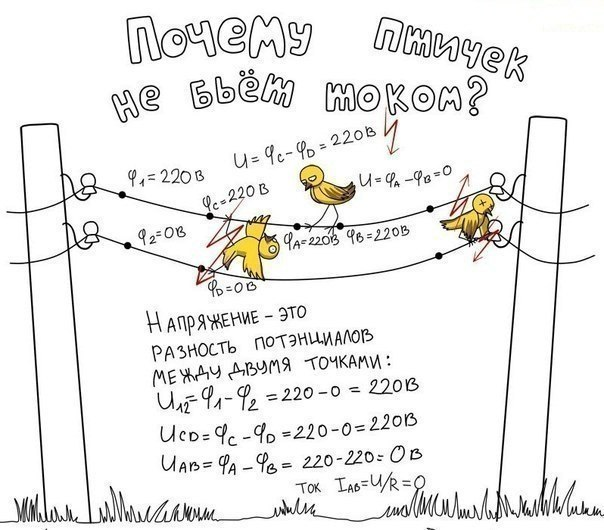 Почему птичек
не бьёт током?
U = φc - φD = 220В
φ₁ = 220В
U = φA - φB = 0
φc = 220В
φ₂ = 0В
φA = 220В
φB = 220В
φD = 0В
Напряжение - это
разность потэнциалов
между двумя точками:
U₁₂ = φ₁ - φ₂ = 220 - 0 = 220В
UCD = φc - φD = 220 - 0 = 220В
UAB = φA - φB = 220 - 220 = 0В
ток IAB = U/R = 0